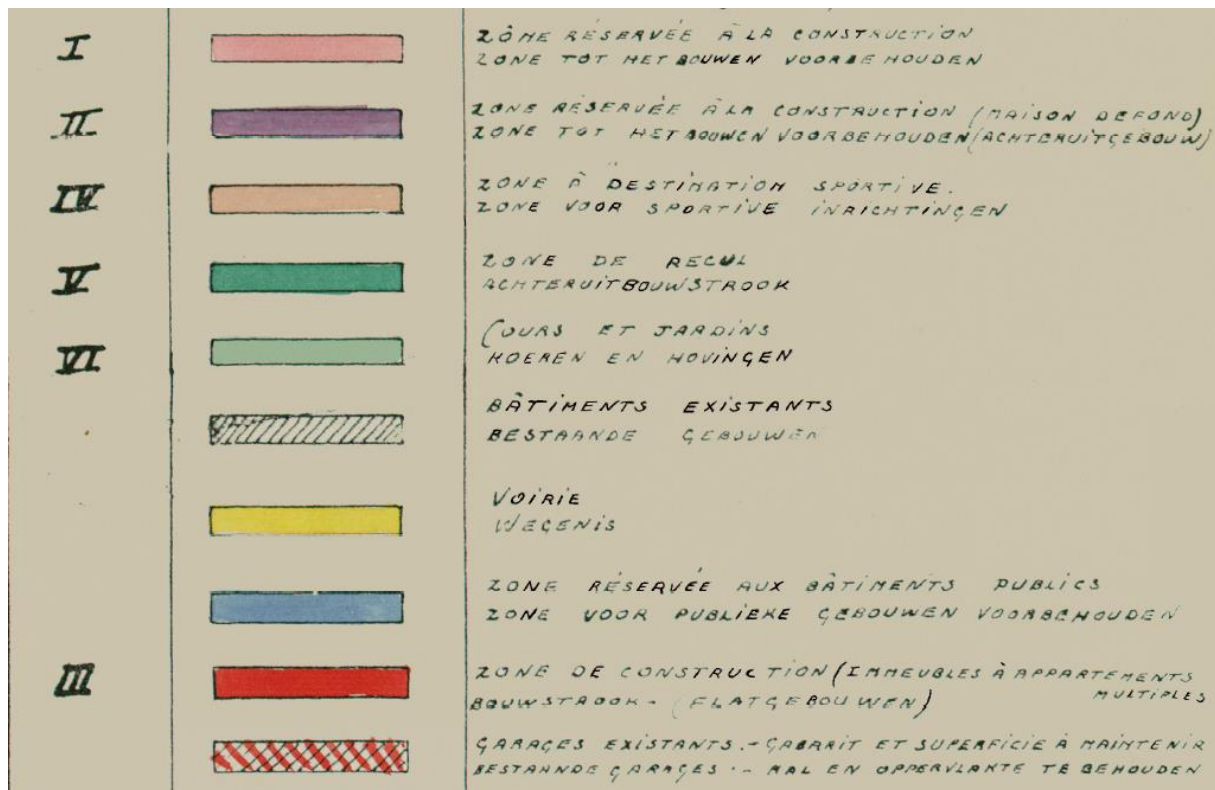 I
ZÔNE RÉSERVÉE À LA CONSTRUCTION
ZONE TOT HET BOUWEN VOORBEHOUDEN
II
ZONE RÉSERVÉE À LA CONSTRUCTION (MAISON DE FOND)
ZONE TOT HET BOUWEN VOORBEHOUDEN (ACHTERUITGEBOUW)
IV
ZONE À DESTINATION SPORTIVE.
ZONE VOOR SPORTIVE INRICHTINGEN
V
ZONE DE RECUL
ACHTERUITBOUWSTROOK
VI
COURS ET JARDINS
KOEREN EN HOVINGEN
BÂTIMENTS EXISTANTS
BESTAANDE GEBOUWEN
VOIRIE
WEGENIS
ZONE RÉSERVÉE AUX BÂTIMENTS PUBLICS
ZONE VOOR PUBLIEKE GEBOUWEN VOORBEHOUDEN
III
ZONE DE CONSTRUCTION (IMMEUBLES À APPARTEMENTS
MULTIPLES
BOUWSTROOK - (FLATGEBOUWEN)
GARAGES EXISTANTS. - GABARIT ET SUPERFICIE À MAINTENIR
BESTAANDE GARAGES. - MAL EN OPPERVLAKTE TE BEHOUDEN